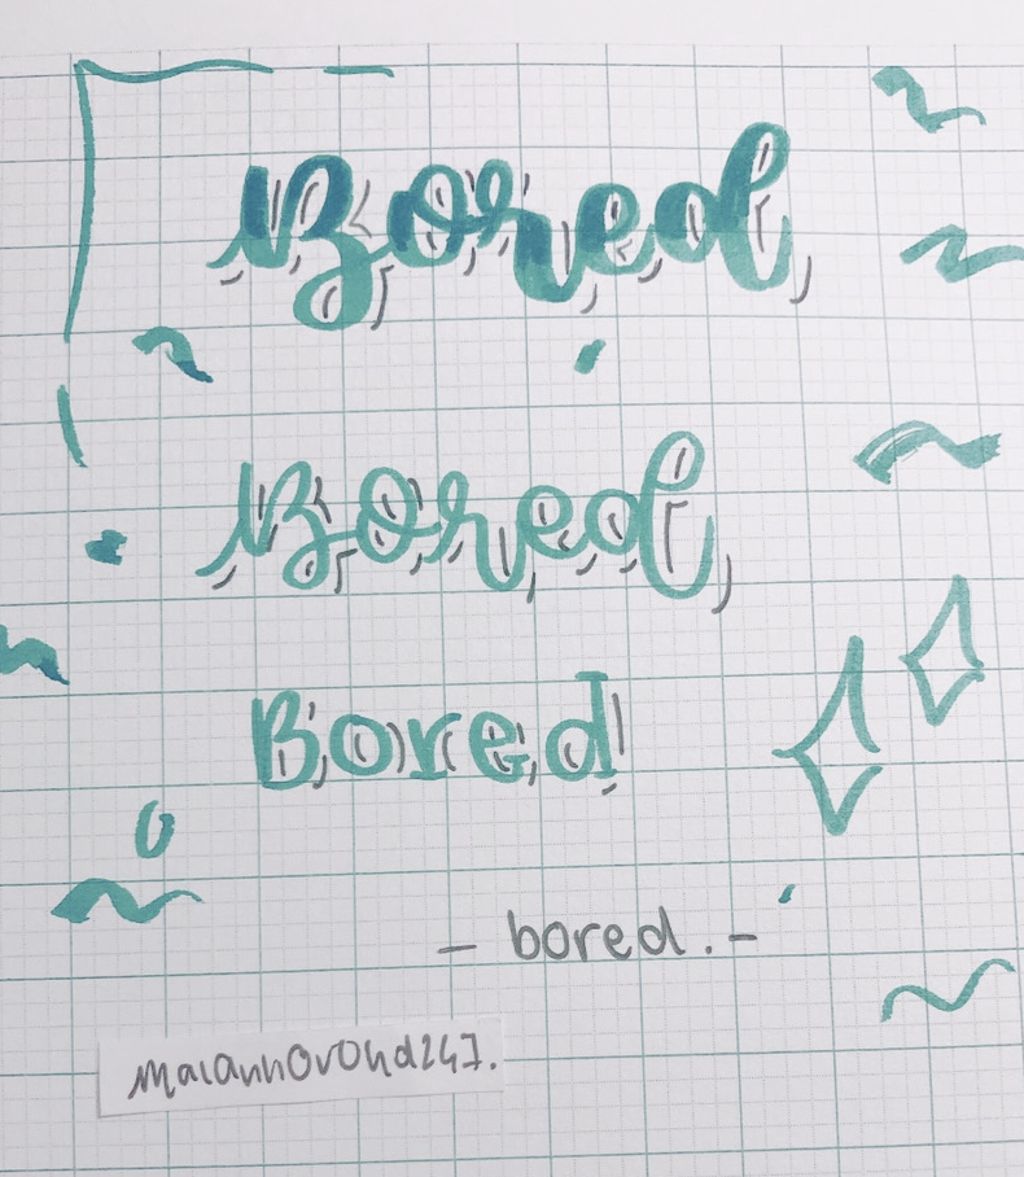 Bored
Bored
Bored
- bored. -